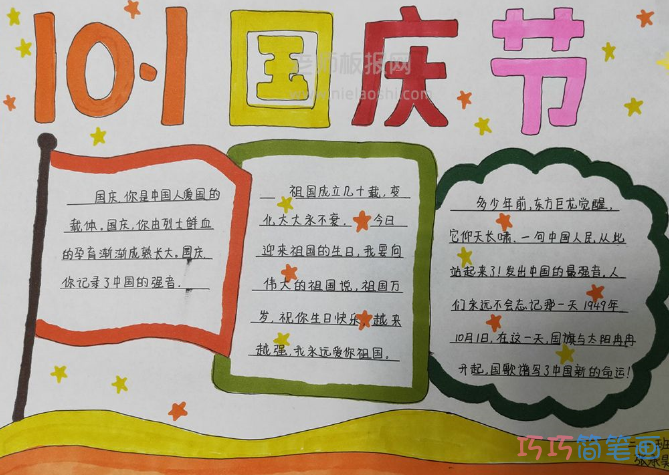 10·1国庆节
老师板报网
www.nielaoshi.com
国庆,你是中国人爱国的
载体。国庆,你由烈士鲜血
的孕育渐渐成熟长大。国庆
你记录了中国的强音.
祖国成立几十载,变
化大大永不衰.今日
迎来祖国的生日,我要向
伟大的祖国说,祖国万
岁.祝你生日快乐越来
越强.我永远爱你祖国.
多少年前,东方巨龙觉醒.
它仰天长啸.一句中国人民,从此
站起来了!发出中国的最强音.人
们永远不会忘记那一天1949年
10月1日,在这一天,国旗与太阳冉冉
升起,国歌谱写了中国新的命运!
班
巧巧简笔画